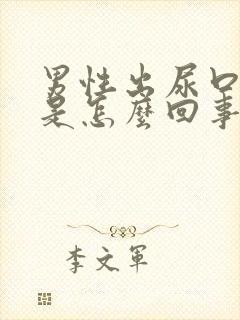 男性出尿口
是怎麼回事
李文軍